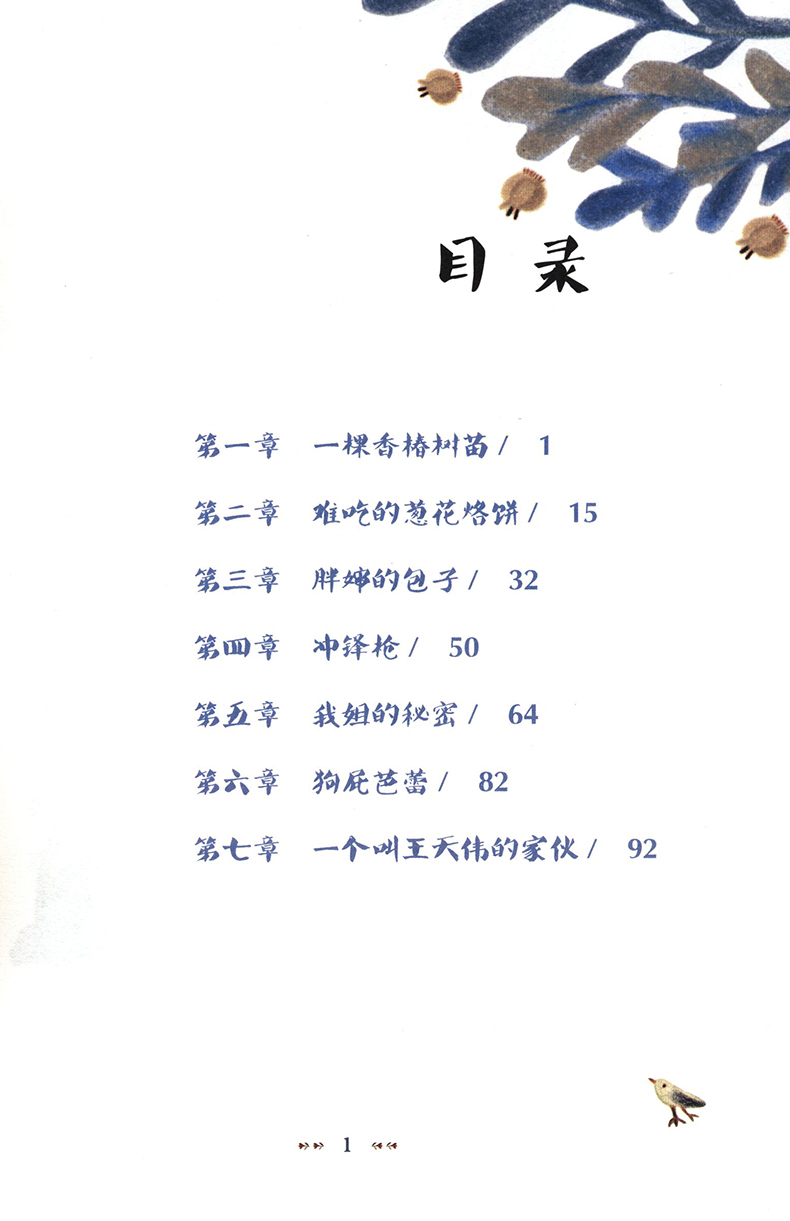 目录
第一章 一棵香椿树苗 / 1
第二章 难吃的葱花烙饼 / 15
第三章 胖婶的包子 / 32
第四章 冲锋枪 / 50
第五章 我姐的秘密 / 64
第六章 狗屁芭蕾 / 82
第七章 一个叫王天伟的家伙 / 92
1